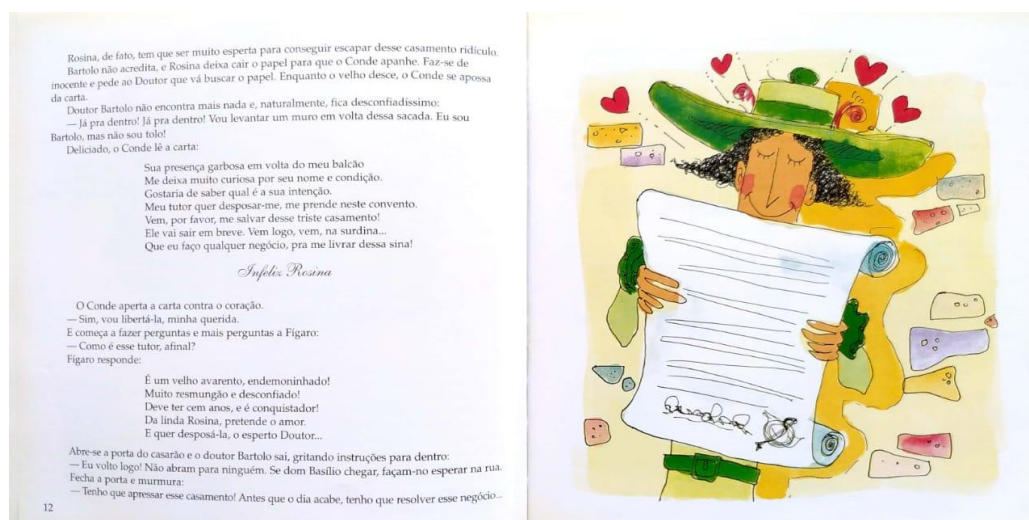 Rosina, de fato, tem que ser muito esperta para conseguir escapar desse casamento ridículo.
Bartolo não acredita, e Rosina deixa cair o papel para que o Conde apanhe. Faz-se de
inocente e pede ao Doutor que vá buscar o papel. Enquanto o velho desce, o Conde se apossa
da carta.
Doutor Bartolo não encontra mais nada e, naturalmente, fica desconfiadíssimo:
— Já pra dentro! Já pra dentro! Vou levantar um muro em volta dessa sacada. Eu sou
Bartolo, mas não sou tolo!
Deliciado, o Conde lê a carta:
Sua presença garbosa em volta do meu balcão
Me deixa muito curiosa por seu nome e condição.
Gostaria de saber qual é a sua intenção.
Meu tutor quer desposar-me, me prende neste convento.
Vem, por favor, me salvar desse triste casamento!
Ele vai sair em breve. Vem logo, vem, na surdina...
Que eu faço qualquer negócio, pra me livrar dessa sina!
Infeliz Rosina
O Conde aperta a carta contra o coração.
— Sim, vou libertá-la, minha querida.
E começa a fazer perguntas e mais perguntas a Fígaro:
— Como é esse tutor, afinal?
Fígaro responde:
É um velho avarento, endemoninhado!
Muito resmungão e desconfiado!
Deve ter cem anos, e é conquistador!
Da linda Rosina, pretende o amor.
E quer desposá-la, o esperto Doutor...
Abre-se a porta do casarão e o doutor Bartolo sai, gritando instruções para dentro:
— Eu volto logo! Não abram para ninguém. Se dom Basílio chegar, façam-no esperar na rua.
Fecha a porta e murmura:
— Tenho que apressar esse casamento! Antes que o dia acabe, tenho que resolver esse negócio...
12